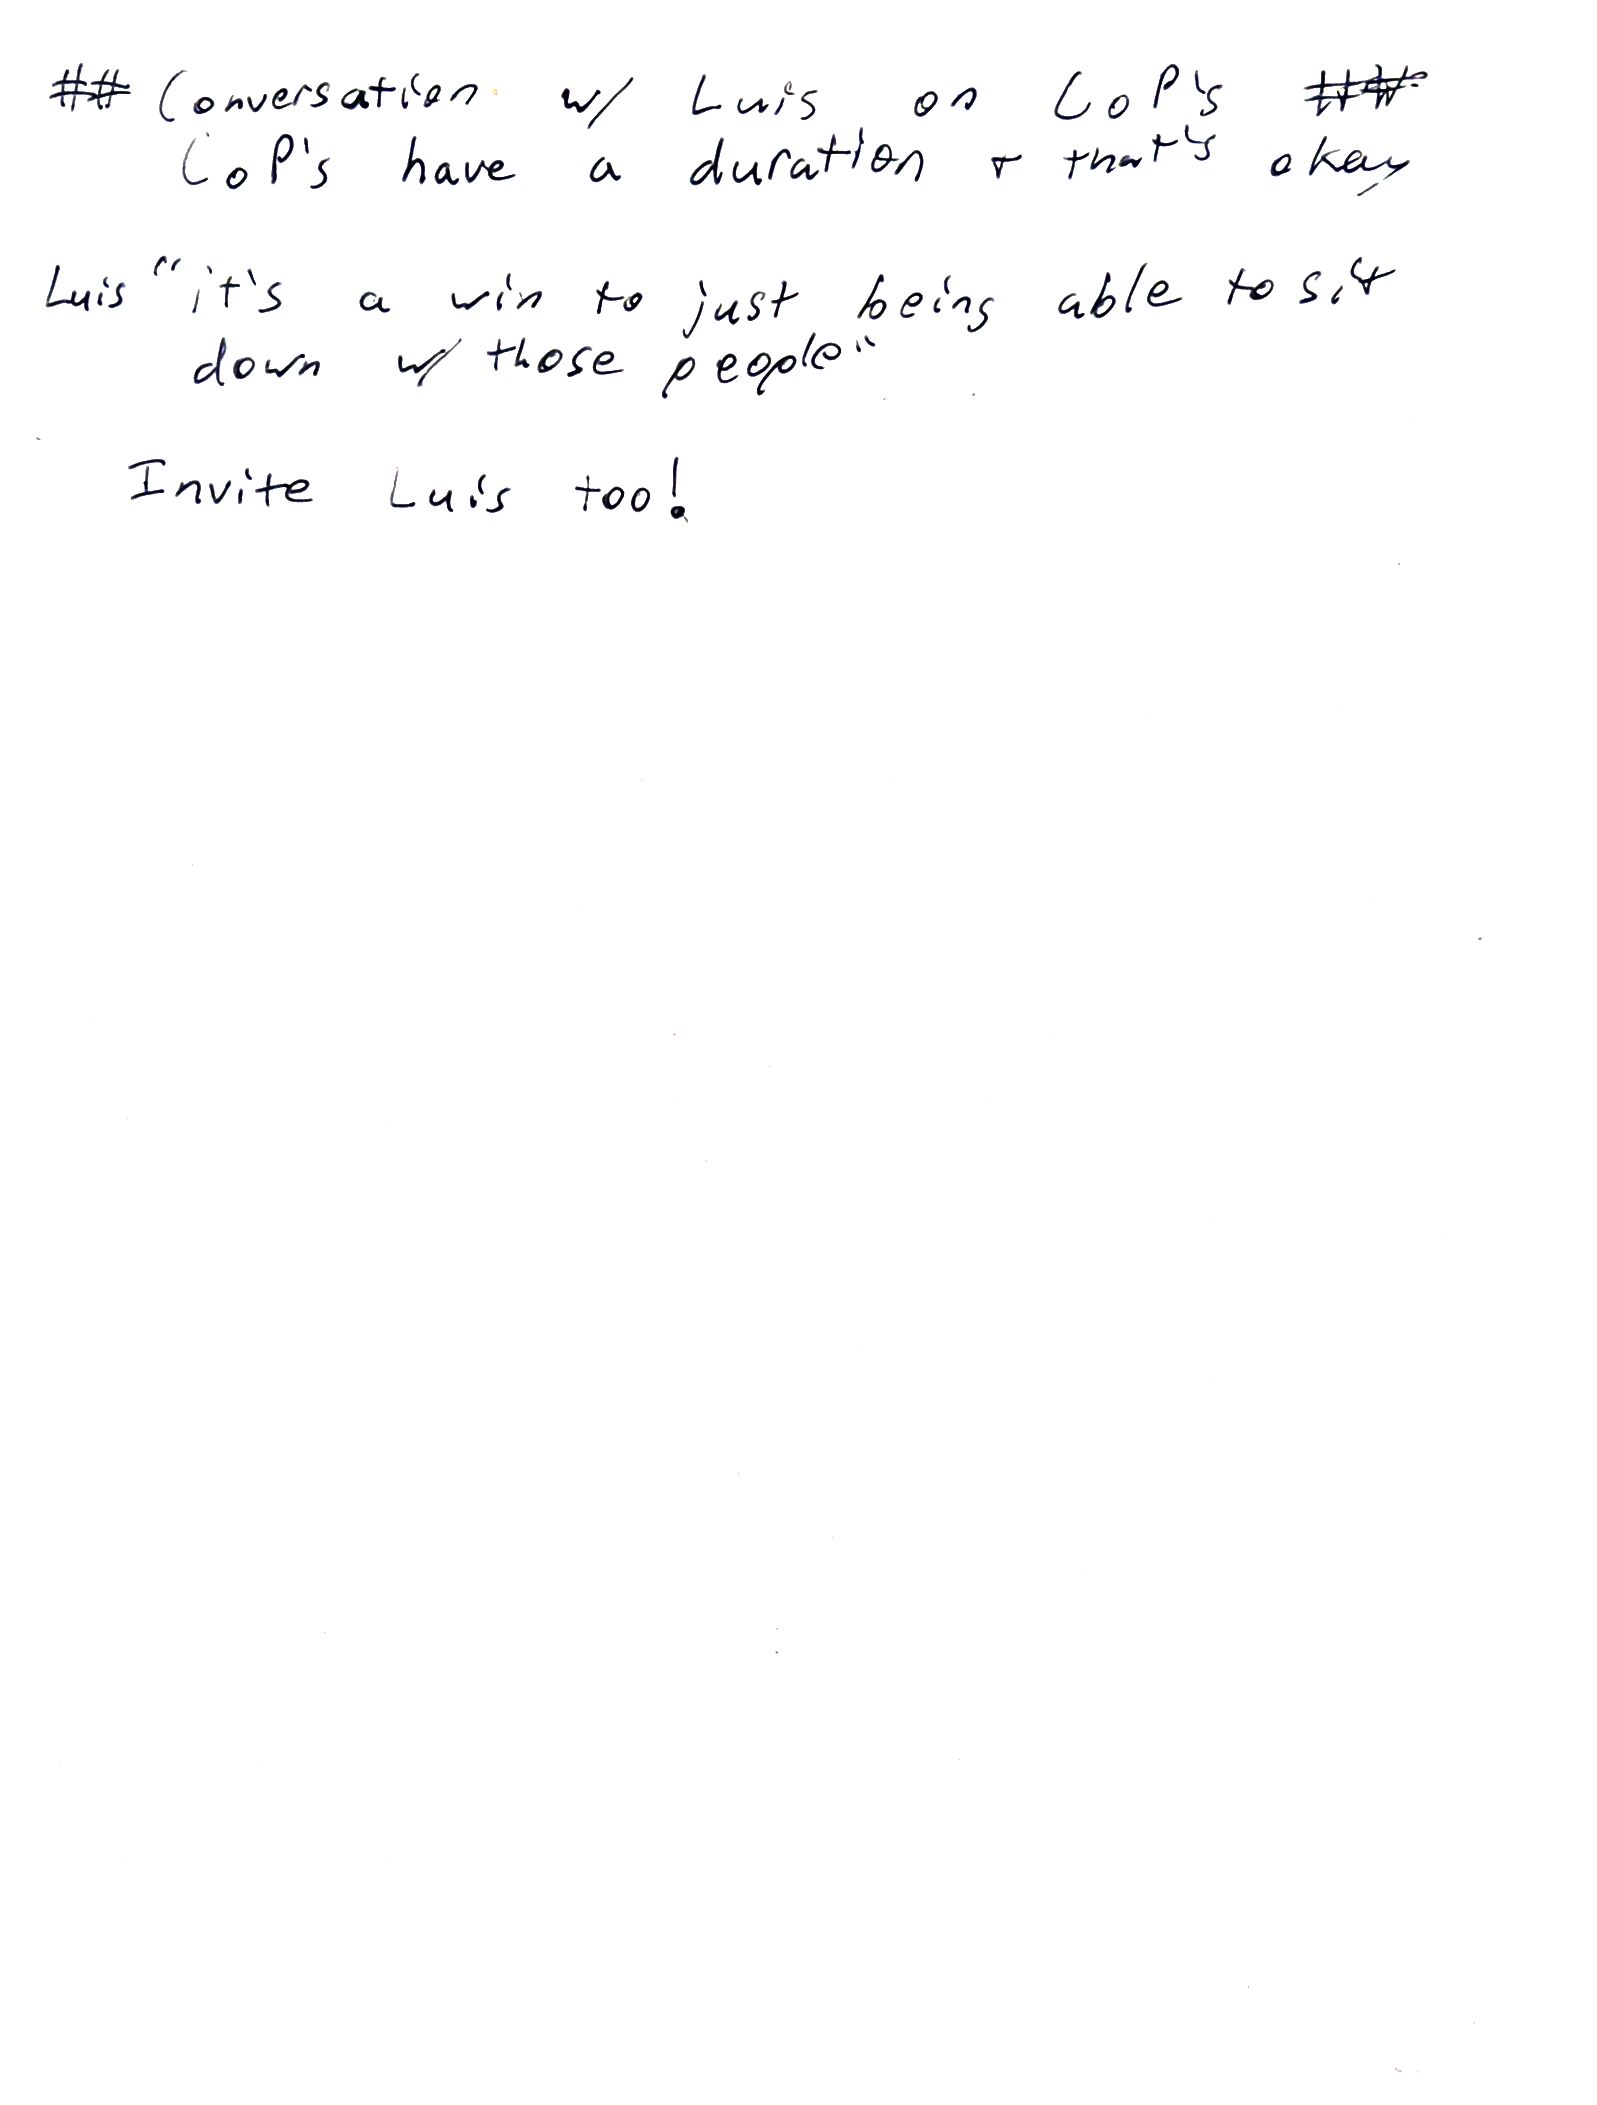 ## Conversation w/ Luis on CoP's ##
CoP's have a duration + that's okay
Luis "it's a win to just being able to sit
down w/ those people"
Invite Luis too!